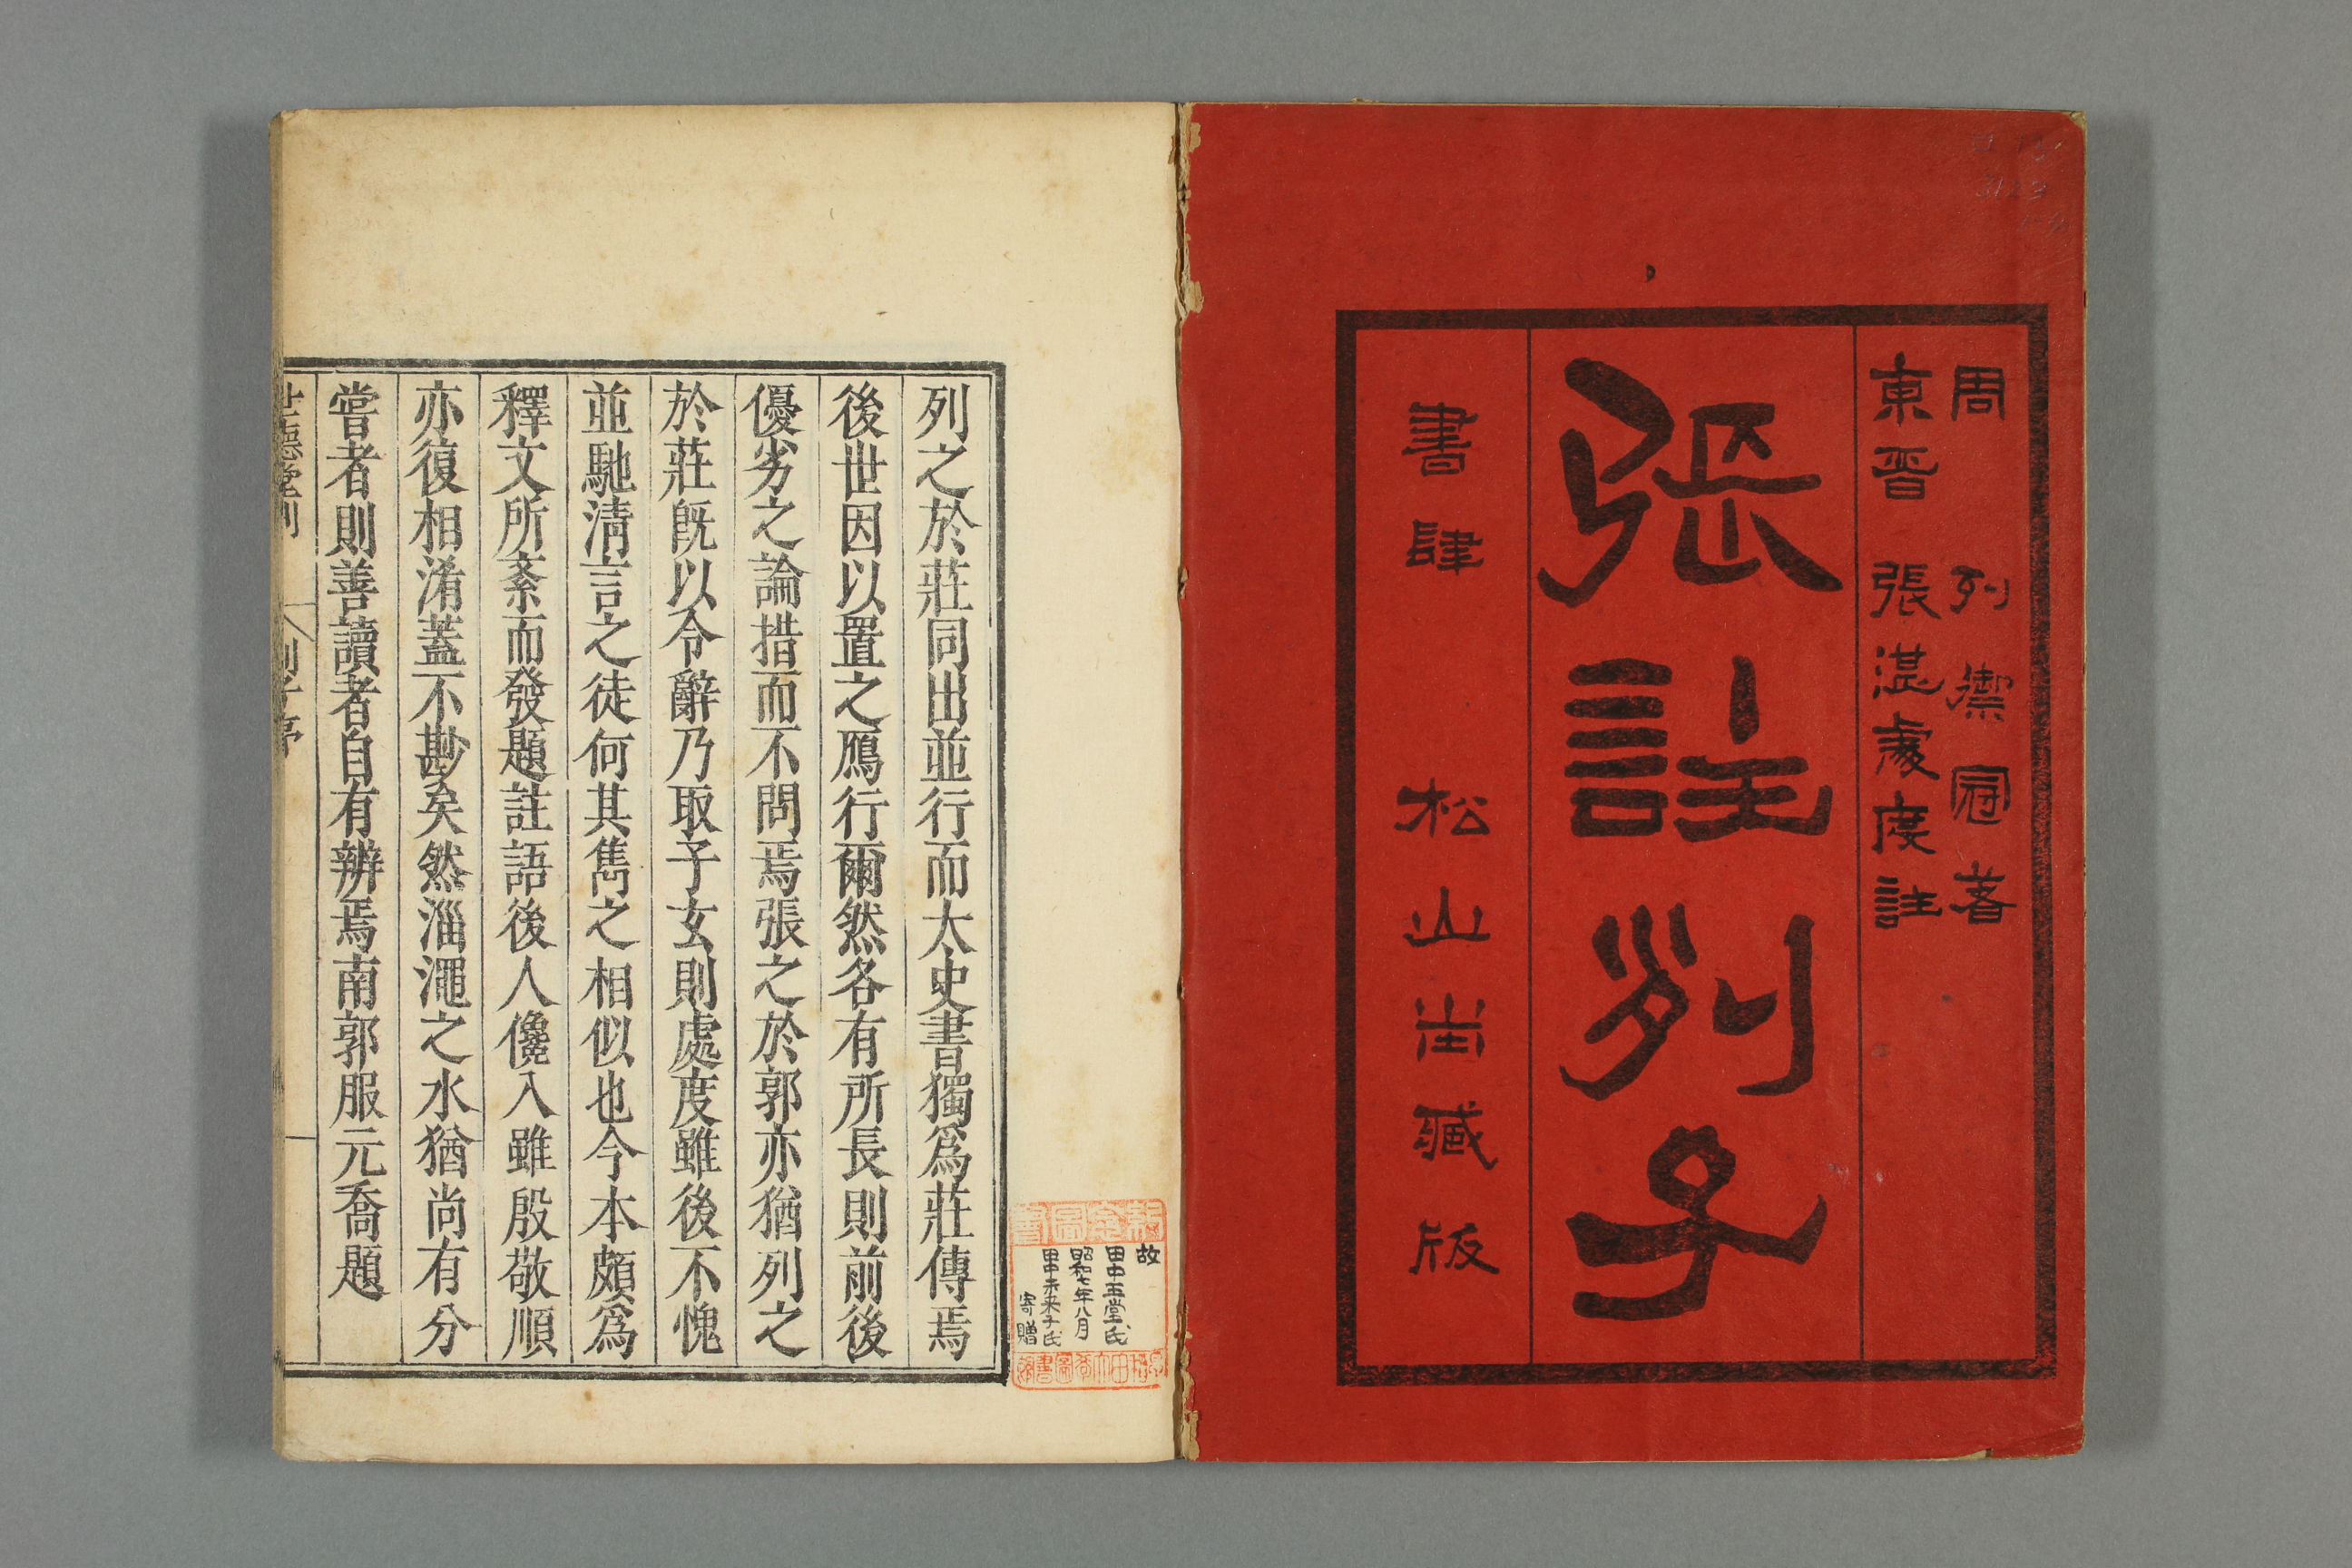 周 列禦冠著
東晋 張湛處度註
張註列子
書肆 松山堂藏版
列之於莊同出並行而太史書獨爲莊傳焉
後世因以置之鴈行爾然各有所長則前後
優劣之論措而不問焉張之於郭亦猶列之
於莊既以令辭乃取予玄則處度雖後不愧
並馳清言之徒何其雋之相似也今本頗爲
釋文所紊而發題註語後人儳入雖殷敬順
亦復相淆蓋不尠矣然淄澠之水猶尚有分
嘗者則善讀者自有辨焉南郭服元喬題
世德堂刊 列子序
故
田中玉堂氏
昭和七年八月
田中未来子氏
寄贈